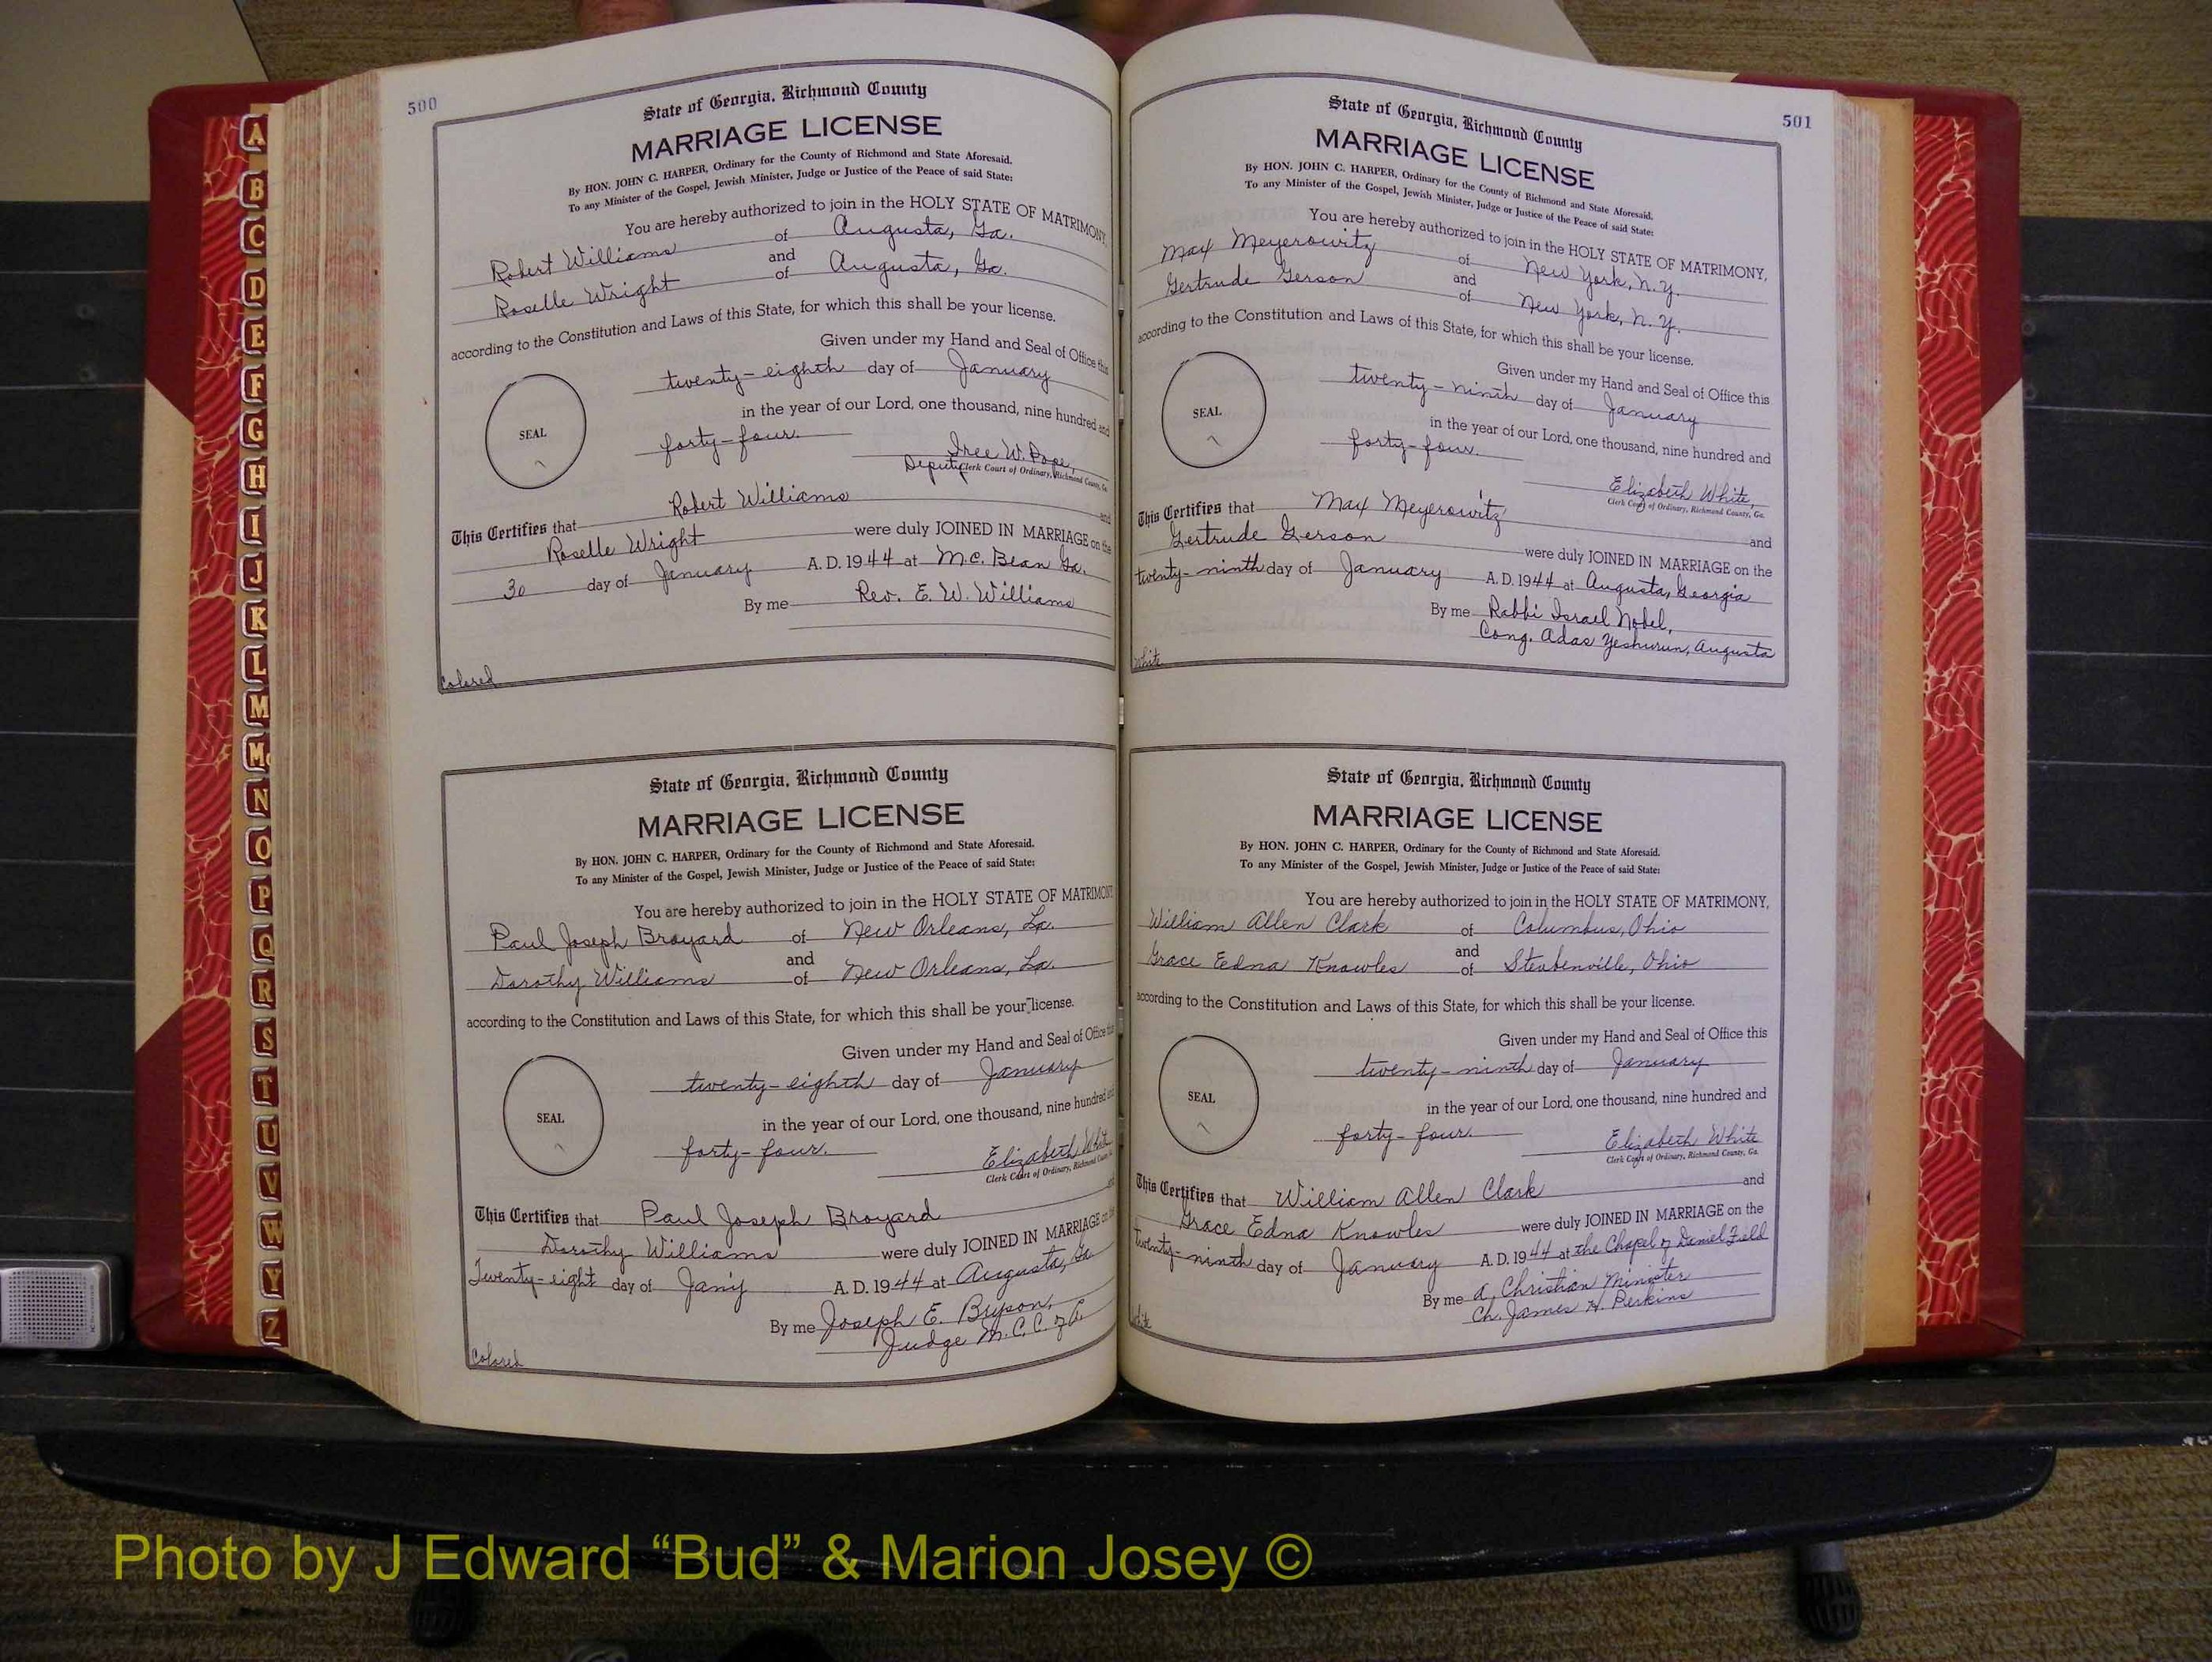 A
B
C
D
E
F
G
H
I
J
K
L
M
Mc
N
O
P
Q
R
S
T
U
V
W
Y
Z
500
State of Georgia, Richmond County
MARRIAGE LICENSE
By HON. JOHN C. HARPER, Ordinary for the County of Richmond and State Aforesaid.
To any Minister of the Gospel, Jewish Minister, Judge or Justice of the Peace of said State:
You are hereby authorized to join in the HOLY STATE OF MATRIMONY,
Robert Williams of Augusta, Ga.
and
Roselle Wright of Augusta, Ga.
according to the Constitution and Laws of this State, for which this shall be your license.
Given under my Hand and Seal of Office this
twenty-eighth day of January
in the year of our Lord, one thousand, nine hundred and
SEAL
forty-four.
W. Pope,
Deputy Clerk Court of Ordinary, Richmond County, Ga.
This Certifies that Robert Williams and
Roselle Wright were duly JOINED IN MARRIAGE on the
30 day of January A. D. 1944 at Mc. Bean Ga.
By me Rev. E. W. Williams
Colored
State of Georgia, Richmond County
MARRIAGE LICENSE
By HON. JOHN C. HARPER, Ordinary for the County of Richmond and State Aforesaid.
To any Minister of the Gospel, Jewish Minister, Judge or Justice of the Peace of said State:
You are hereby authorized to join in the HOLY STATE OF MATRIMONY
Paul Joseph Broyard of New Orleans, La.
and
Dorothy Williams of New Orleans, La.
according to the Constitution and Laws of this State, for which this shall be your license.
Given under my Hand and Seal of Office this
twenty-eighth day of January
in the year of our Lord, one thousand, nine hundred and
SEAL
forty-four.
Elizabeth White
Clerk Court of Ordinary, Richmond County, Ga.
This Certifies that Paul Joseph Broyard and
Dorothy Williams were duly JOINED IN MARRIAGE on the
Twenty-eight day of Jan'y A. D. 1944 at Augusta, Ga.
By me Joseph E. Bryson,
Judge M. C. C. of A.
Colored
501
State of Georgia, Richmond County
MARRIAGE LICENSE
By HON. JOHN C. HARPER, Ordinary for the County of Richmond and State Aforesaid.
To any Minister of the Gospel, Jewish Minister, Judge or Justice of the Peace of said State:
You are hereby authorized to join in the HOLY STATE OF MATRIMONY,
Max Meyerowitz of New York, N.Y.
and
Gertrude Gerson of New York, N.Y.
according to the Constitution and Laws of this State, for which this shall be your license.
Given under my Hand and Seal of Office this
twenty-ninth day of January
in the year of our Lord, one thousand, nine hundred and
SEAL
forty-four.
Elizabeth White,
Clerk Court of Ordinary, Richmond County, Ga.
This Certifies that Max Meyerowitz and
Gertrude Gerson were duly JOINED IN MARRIAGE on the
twenty-ninth day of January A. D. 1944 at Augusta, Georgia
By me Rabbi Israel Nobel,
Cong. Adas Yeshurun, Augusta
White
State of Georgia, Richmond County
MARRIAGE LICENSE
By HON. JOHN C. HARPER, Ordinary for the County of Richmond and State Aforesaid.
To any Minister of the Gospel, Jewish Minister, Judge or Justice of the Peace of said State:
You are hereby authorized to join in the HOLY STATE OF MATRIMONY,
William Allen Clark of Columbus, Ohio
and
Grace Edna Knowles of Steubenville, Ohio
according to the Constitution and Laws of this State, for which this shall be your license.
Given under my Hand and Seal of Office this
twenty-ninth day of January
in the year of our Lord, one thousand, nine hundred and
SEAL
forty-four.
Elizabeth White
Clerk Court of Ordinary, Richmond County, Ga.
This Certifies that William Allen Clark and
Grace Edna Knowles were duly JOINED IN MARRIAGE on the
twenty-ninth day of January A. D. 1944 at the Chapel of Daniel Field
By me a Christian Minister
Ch. James H. Perkins
White
Photo by J Edward “Bud” & Marion Josey ©